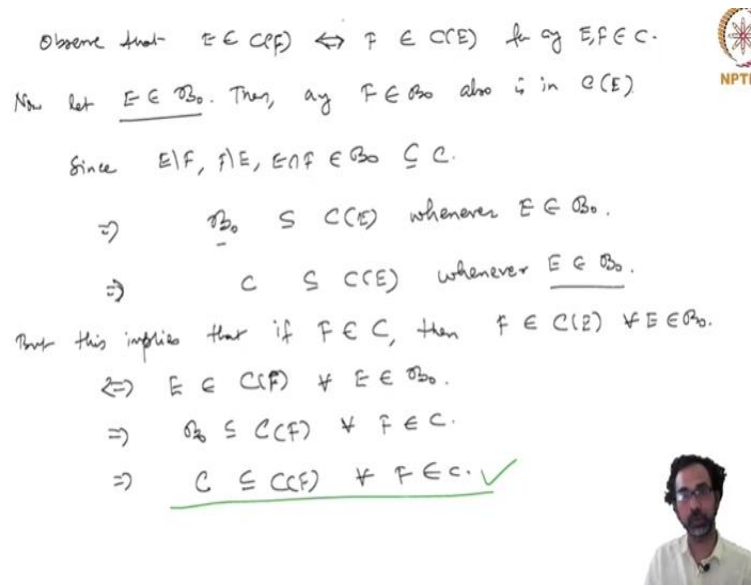 Observe that E ∈ C(F) ⇔ F ∈ C(E) for any E,F ∈ C.
NPTEL
Now let E ∈ B₀. Then, any F ∈ B₀ also is in C(E)
Since E\F, F\E, E∩F ∈ B₀ ⊆ C.
⇒ B₀ ⊆ C(E) whenever E ∈ B₀.
⇒ C ⊆ C(E) whenever E ∈ B₀.
But this implies that if F ∈ C, then F ∈ C(E) ∀ E ∈ B₀.
⇔ E ∈ C(F) ∀ E ∈ B₀.
⇒ B₀ ⊆ C(F) ∀ F ∈ C.
⇒ C ⊆ C(F) ∀ F ∈ C. ✓